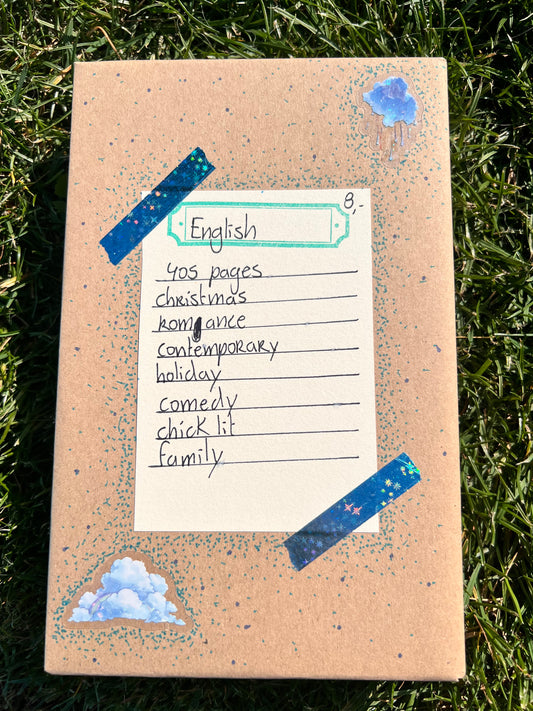 8,-
English
405 pages
christmas
romance
contemporary
holiday
comedy
chick lit
family